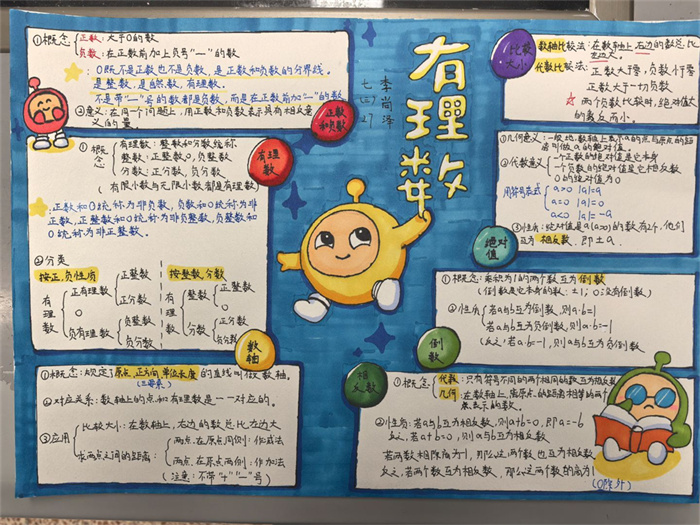 有理数
七(三)
李尚泽
正数和负数
①概念
正数:大于0的数
负数:在正数前加上负号"—"的数
0既不是正数也不是负数,是正数和负数的分界线。
是整数,是自然数,有理数。
不是带"—"号的数都是负数,而是在正数前加"—"的数
②意义:在同一个问题上,用正数和负数表示具有相反意
义的量。
有理数
①概念
有理数:整数和分数统称
整数:正整数,0,负整数
分数:正分数,负分数
(有限小数与无限小数都是有理数)
正数和0统称为非负数,负数和0统称为非
正数,正整数和0统称为非负整数,负整数和
0统称为非正整数。
②分类
按正,负性质
有理数
正有理数
正整数
正分数
0
负有理数
负整数
负分数
按整数,分数
有理数
整数
正整数
0
负整数
分数
正分数
负分数
数轴
①概念:规定了原点,正方向,单位长度的直线叫做数轴。
(三要素)
②对应关系:数轴上的点和有理数是一一对应的。
③应用
比较大小:在数轴上,右边的数总比左边大
求两点之间的距离:
两点在原点同侧:作减法
两点在原点两侧:作加法
(注意:不带"+""—"号)
比较大小
数轴比较法:在数轴上,右边的数总比
左边大。
代数比较法:正数大于零,负数小于零
正数大于一切负数
两个负数比较时,绝对值大
的数反而小。
绝对值
①几何意义:一般地,数轴上表示a的点与原点的距
离叫做a的绝对值。
②代数意义
一个正数的绝对值是它本身
一个负数的绝对值是它相反数
0的绝对值为0
用符号表式
a>0 |a|=a
a=0 |a|=0
a<0 |a|=-a
③性质:绝对值是a(a>0)的数有2个,他们
互为相反数,即±a.
倒数
①概念:乘积为1的两个数互为倒数
(倒数是它本身的数:±1;0没有倒数)
②性质
若a与b互为倒数,则a·b=1
若a与b互为负倒数,则a·b=-1
(反之:a·b=-1,则a与b互为负倒数
相反数
①概念
代数:只有符号不同的两个相同的数互为相反数
几何:在数轴上,离原点的距离相等的两个
点表示的数。
②性质:若a与b互为相反数,则a+b=0,即a=-b
反之,若a+b=0,则a与b互为相反数
若两数相除商为-1,那么这两个数也互为相反数
反之,若两个数互为相反数,那么这两个数的商为-1
(0除外)